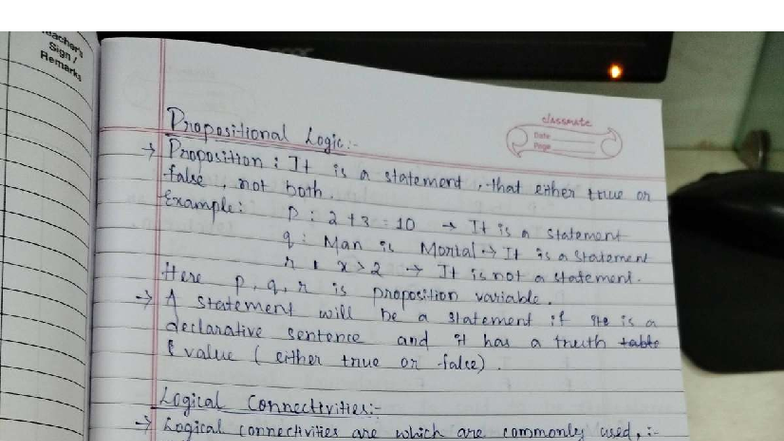 Teacher's
Sign /
Remarks
classmate
Date
Page
Propositional Logic:-
→ Proposition : It is a statement, that either true or
false, not both.
Example: p : 2+3 = 10 → It is a statement
q : Man is Mortal → It is a statement
r : x > 2 → It is not a statement.
Here p, q, r is proposition variable.
→ A statement will be a statement if it is a
declarative sentence and it has a truth table
& value (either true or false).
Logical Connectivities:-
→ Logical connectivities are which are commonly used, :-